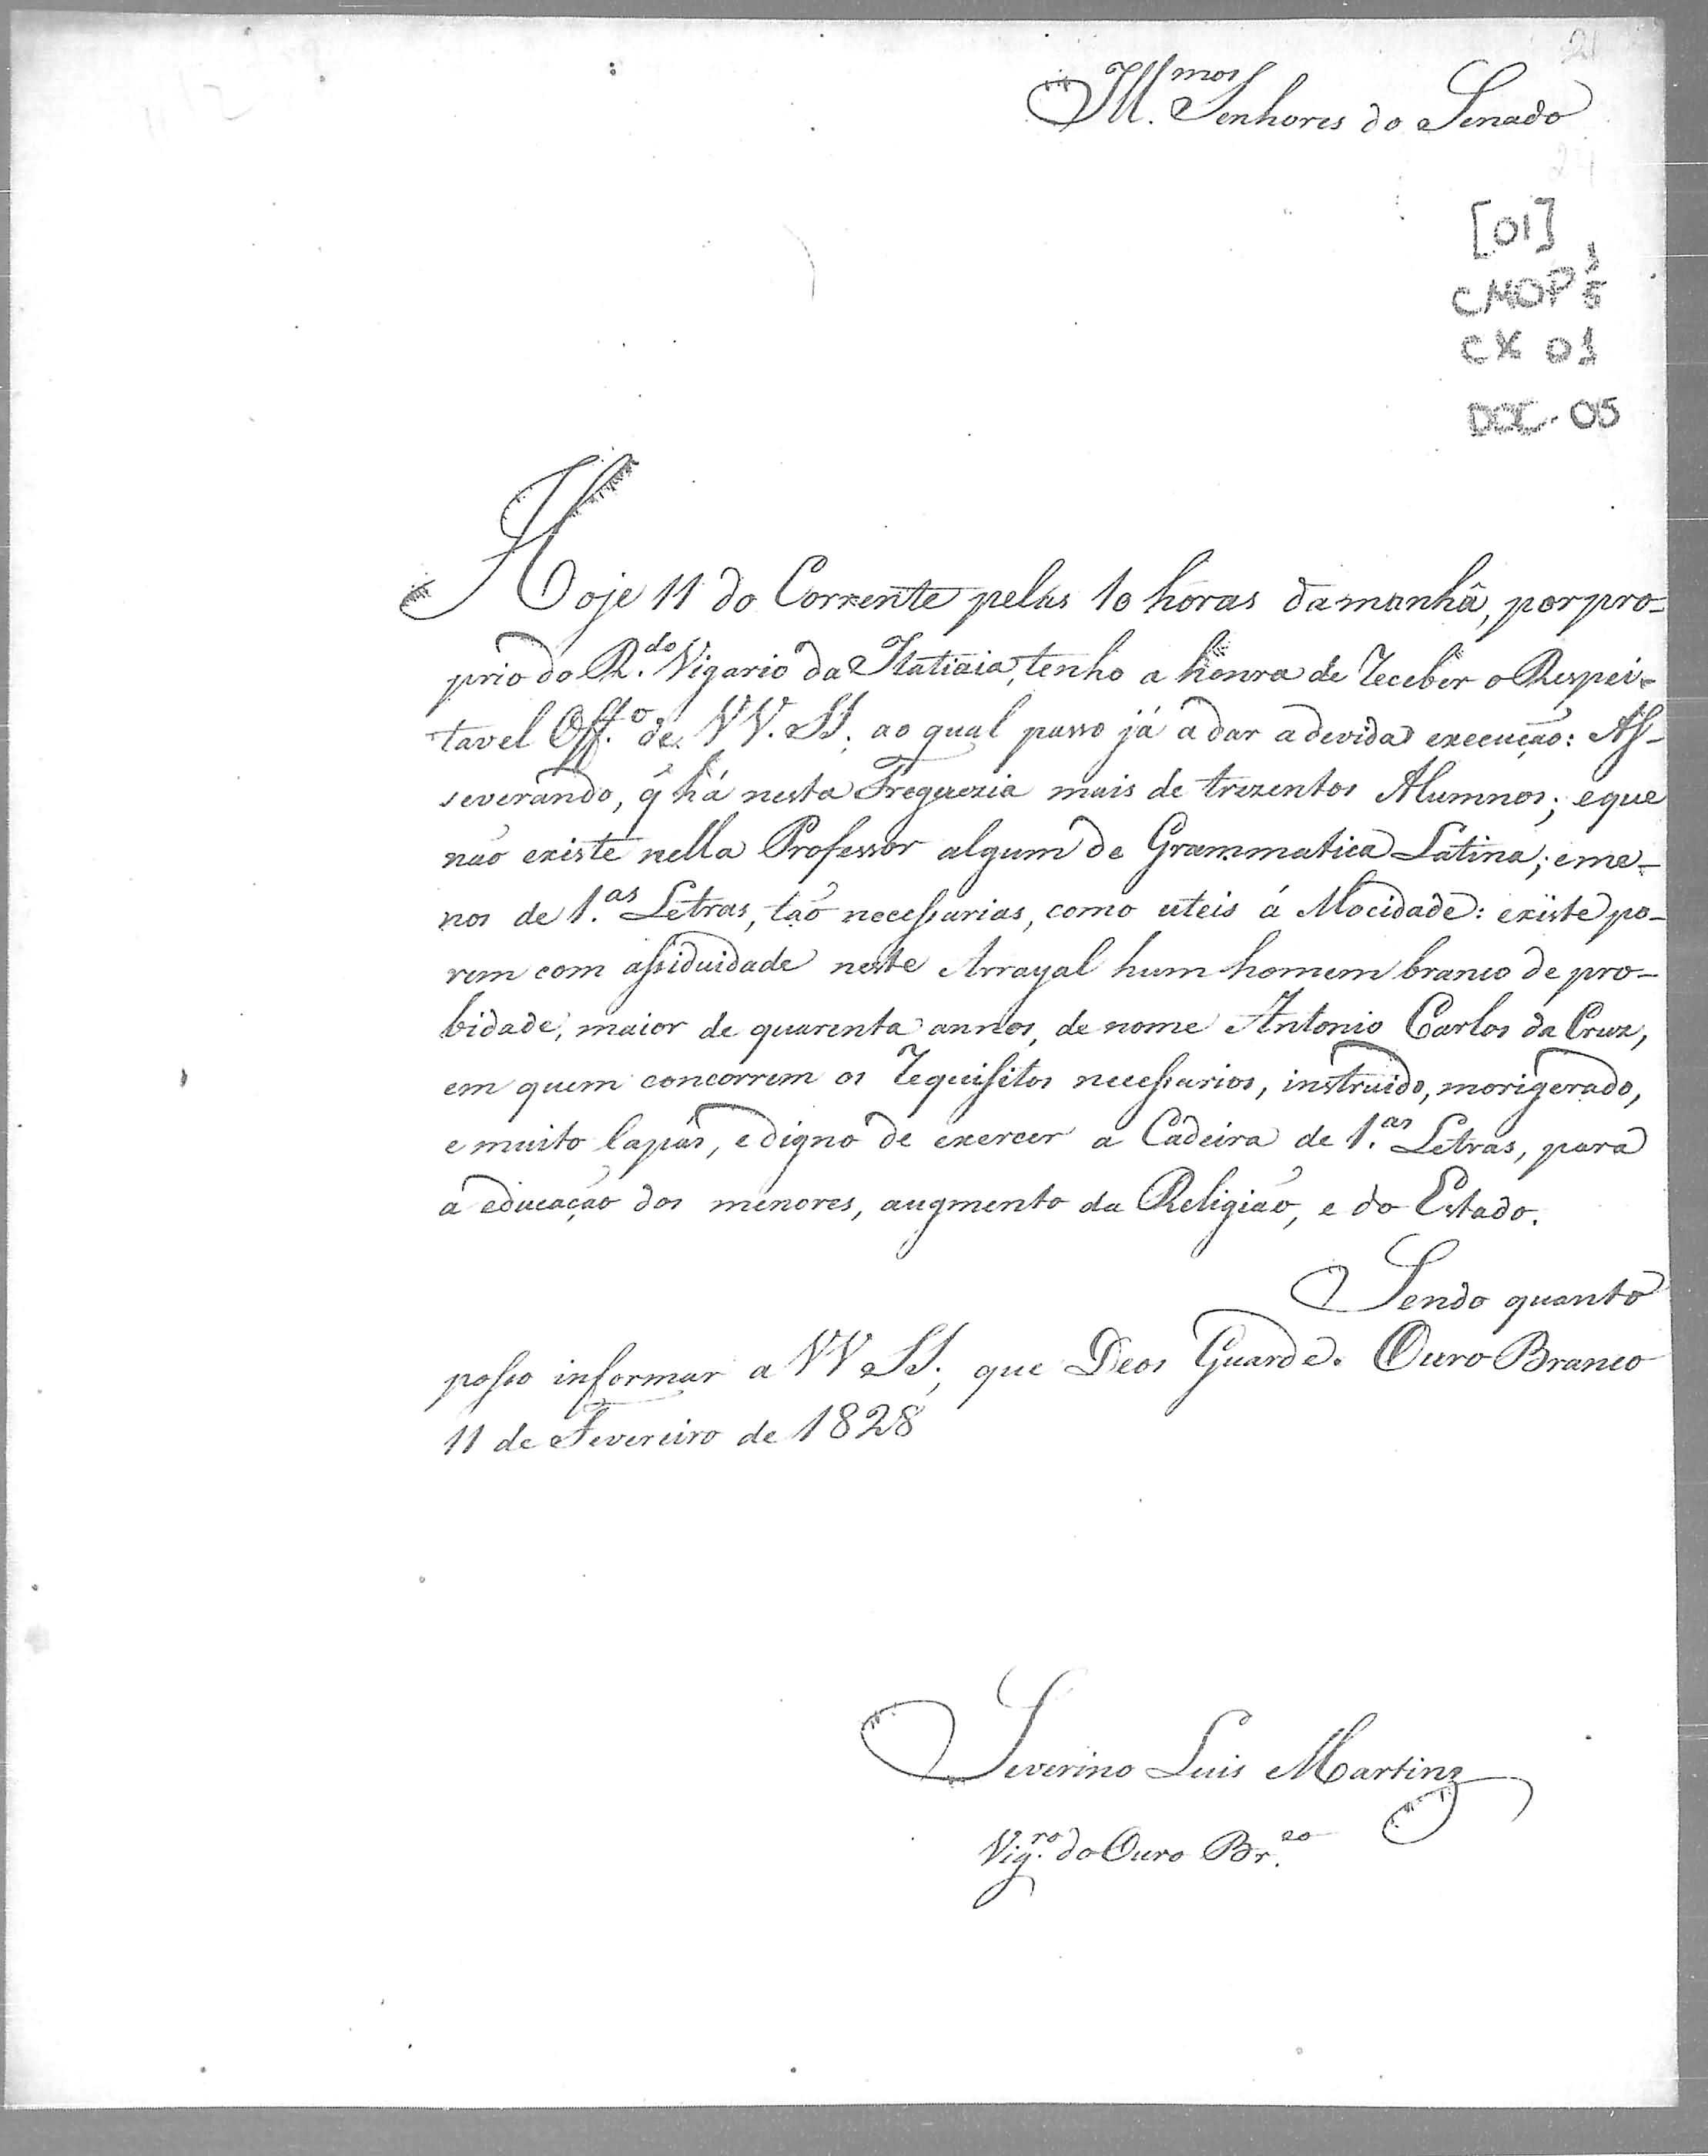 21
Ill.mos Senhores do Senado
24
[01]
CMOP 3/5
CX 01
DOC. 05
Hoje 11 do Corrente pelas 10 horas damanhã, porpro-
prio do R.do Vigario da Itatiaia, tenho a honra de receber o Respei-
tavel Off.o de VV. SS. ao qual passo já a dar adevida execução: As-
severando, q̃ há nesta Freguezia mais de trezentos Alumnos; eque
não existe nella Professor algum de Grammatica Latina; eme-
nos de 1.as Letras, tão necessarias, como uteis á Mocidade: existe po-
rem com assiduidade neste Arrayal hum homem branco de pro-
bidade, maior de quarenta annos, de nome Antonio Carlos da Cruz,
em quem concorrem os requisitos necessarios, instruido, morigerado,
e muito capás, edigno de exercer a Cadeira de 1.as Letras, para
a educação dos menores, augmento da Religião, e do Estado.
Sendo quanto
posso informar a VV SS., que Deos Guarde. Ouro Branco
11 de Fevereiro de 1828
Severino Luis Martinz
Vig.ro do Ouro Br.co